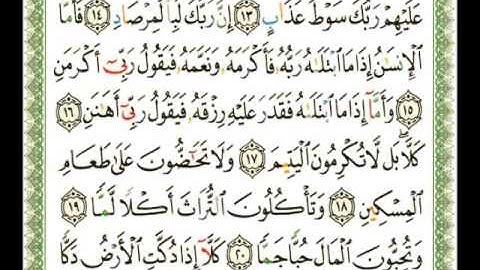 عَلَيْهِمْ رَبُّكَ سَوْطَ عَذَابٍ ١٣ إِنَّ رَبَّكَ لَبِالْمِرْصَادِ ١٤ فَأَمَّا
الْإِنسَٰنُ إِذَا مَا ابْتَلَىٰهُ رَبُّهُۥ فَأَكْرَمَهُۥ وَنَعَّمَهُۥ فَيَقُولُ رَبِّىٓ أَكْرَمَنِ
١٥ وَأَمَّآ إِذَا مَا ابْتَلَىٰهُ فَقَدَرَ عَلَيْهِ رِزْقَهُۥ فَيَقُولُ رَبِّىٓ أَهَٰنَنِ ١٦
كَلَّا ۖ بَل لَّا تُكْرِمُونَ الْيَتِيمَ ١٧ وَلَا تَحَٰٓضُّونَ عَلَىٰ طَعَامِ
الْمِسْكِينِ ١٨ وَتَأْكُلُونَ التُّرَاثَ أَكْلًا لَّمًّا ١٩
وَتُحِبُّونَ الْمَالَ حُبًّا جَمًّا ٢٠ كَلَّآ إِذَا دُكَّتِ الْأَرْضُ دَكًّا